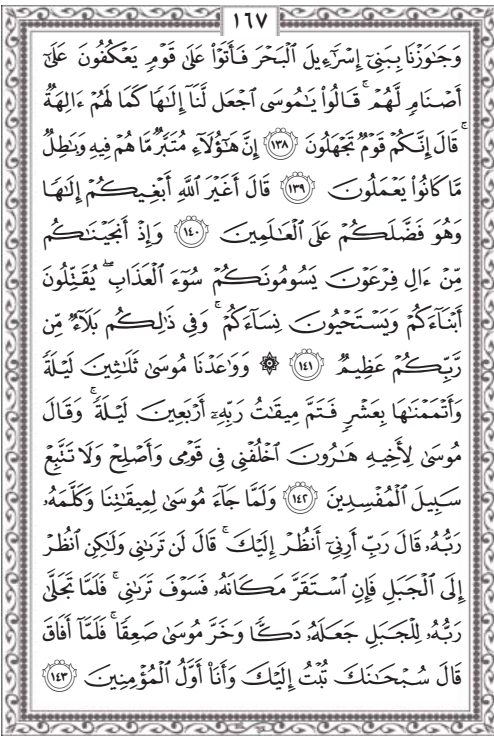 ١٦٧
وَجَٰوَزْنَا بِبَنِىٓ إِسْرَٰٓءِيلَ ٱلْبَحْرَ فَأَتَوْا۟ عَلَىٰ قَوْمٍ يَعْكُفُونَ عَلَىٰٓ
أَصْنَامٍ لَّهُمْ ۚ قَالُوا۟ يَٰمُوسَى ٱجْعَل لَّنَآ إِلَٰهًا كَمَا لَهُمْ ءَالِهَةٌ
ۚ قَالَ إِنَّكُمْ قَوْمٌ تَجْهَلُونَ ١٣٨ إِنَّ هَٰٓؤُلَآءِ مُتَبَّرٌ مَّا هُمْ فِيهِ وَبَٰطِلٌ
مَّا كَانُوا۟ يَعْمَلُونَ ١٣٩ قَالَ أَغَيْرَ ٱللَّهِ أَبْغِيكُمْ إِلَٰهًا
وَهُوَ فَضَّلَكُمْ عَلَى ٱلْعَٰلَمِينَ ١٤٠ وَإِذْ أَنجَيْنَٰكُم
مِّنْ ءَالِ فِرْعَوْنَ يَسُومُونَكُمْ سُوٓءَ ٱلْعَذَابِ ۖ يُقَتِّلُونَ
أَبْنَآءَكُمْ وَيَسْتَحْيُونَ نِسَآءَكُمْ ۚ وَفِى ذَٰلِكُم بَلَآءٌ مِّن
رَّبِّكُمْ عَظِيمٌ ١٤١ ۞ وَوَٰعَدْنَا مُوسَىٰ ثَلَٰثِينَ لَيْلَةً
وَأَتْمَمْنَٰهَا بِعَشْرٍ فَتَمَّ مِيقَٰتُ رَبِّهِۦٓ أَرْبَعِينَ لَيْلَةً ۚ وَقَالَ
مُوسَىٰ لِأَخِيهِ هَٰرُونَ ٱخْلُفْنِى فِى قَوْمِى وَأَصْلِحْ وَلَا تَتَّبِعْ
سَبِيلَ ٱلْمُفْسِدِينَ ١٤٢ وَلَمَّا جَآءَ مُوسَىٰ لِمِيقَٰتِنَا وَكَلَّمَهُۥ
رَبُّهُۥ قَالَ رَبِّ أَرِنِىٓ أَنظُرْ إِلَيْكَ ۚ قَالَ لَن تَرَىٰنِى وَلَٰكِنِ ٱنظُرْ
إِلَى ٱلْجَبَلِ فَإِنِ ٱسْتَقَرَّ مَكَانَهُۥ فَسَوْفَ تَرَىٰنِى ۚ فَلَمَّا تَجَلَّىٰ
رَبُّهُۥ لِلْجَبَلِ جَعَلَهُۥ دَكًّا وَخَرَّ مُوسَىٰ صَعِقًا ۚ فَلَمَّآ أَفَاقَ
قَالَ سُبْحَٰنَكَ تُبْتُ إِلَيْكَ وَأَنَا۠ أَوَّلُ ٱلْمُؤْمِنِينَ ١٤٣